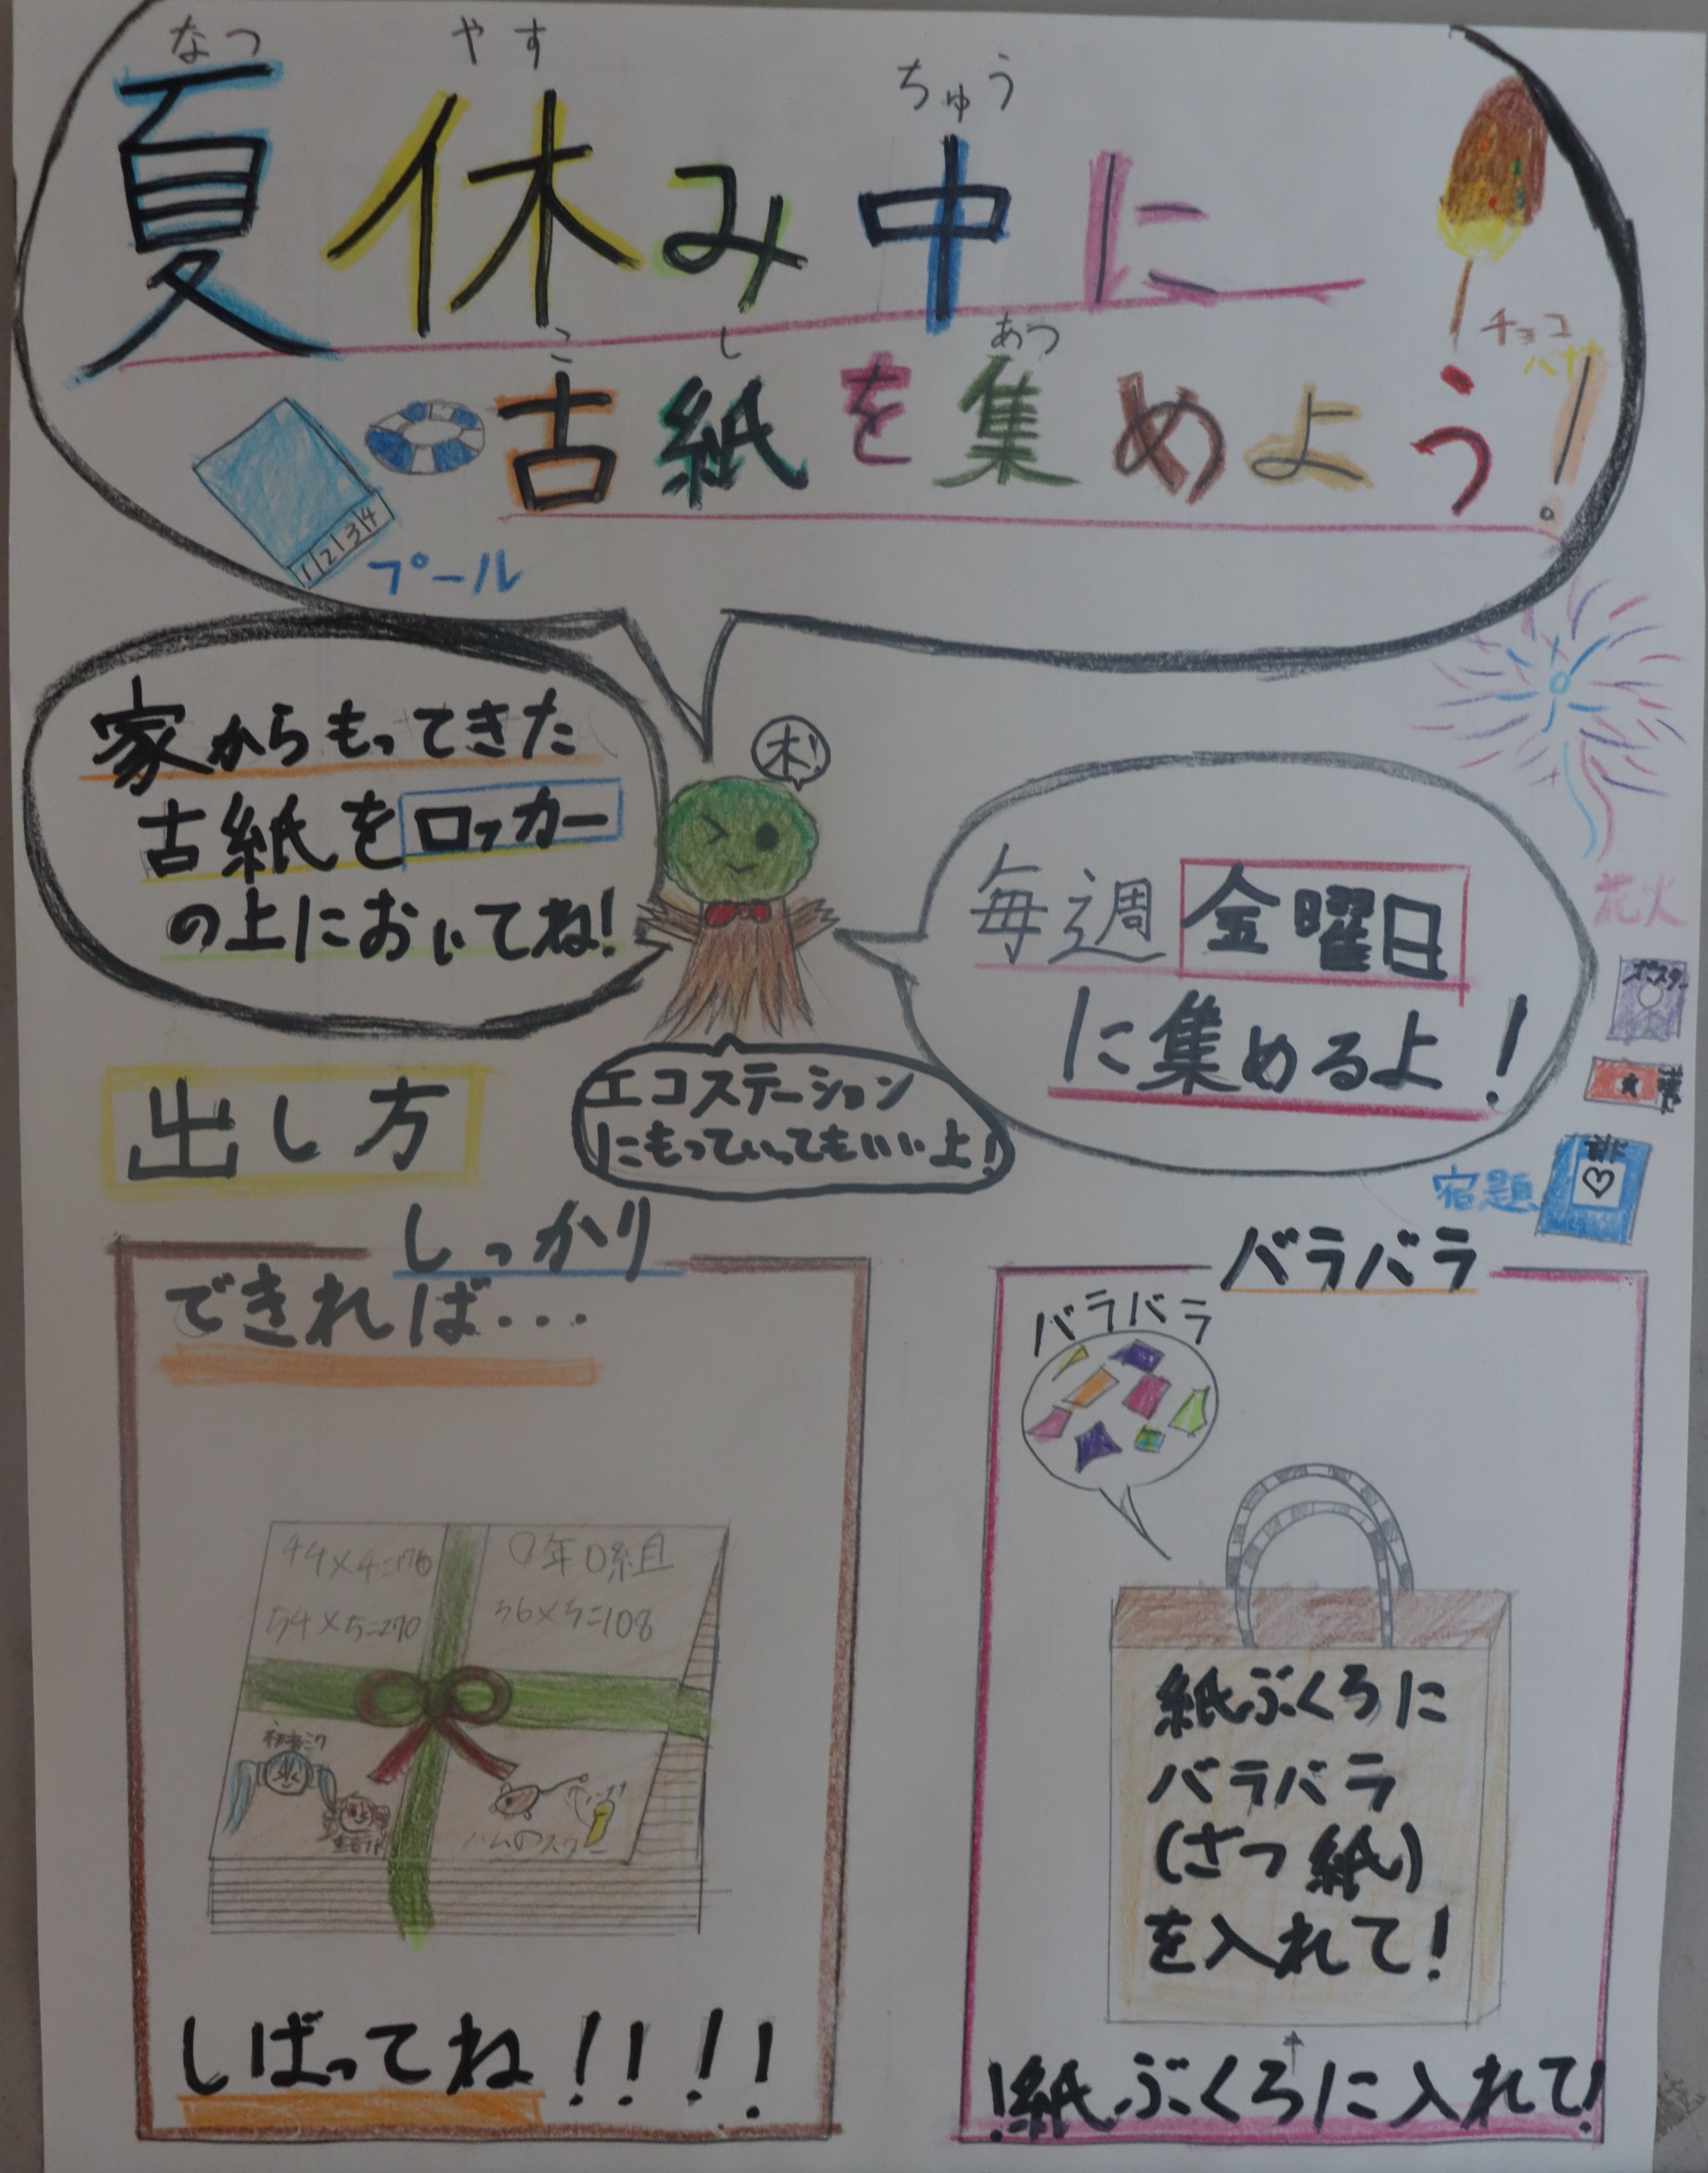 なつ やす ちゅう
夏休み中に
チョコ
バナナ
こ し あつ
古紙を集めよう!
1234
プール
家からもってきた
古紙をロッカー
の上においてね!
木!
毎週金曜日
に集めるよ!
花火
ポスター
エコステーション
にもっていってもいいよ!
宿題
出し方
しっかり
できれば...
44×4=176
54×5=270
0年0組
36×3=108
初音ミク
しばってね!!!!
バラバラ
バラバラ
紙ぶくろに
バラバラ
(ざつ紙)
を入れて!
!紙ぶくろに入れて!